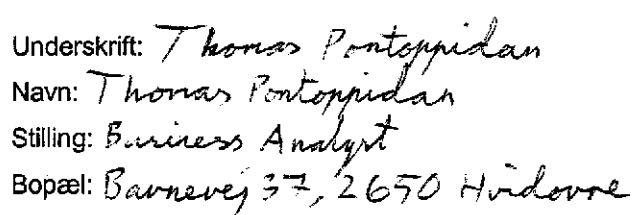 Underskrift: Thomas Pontoppidan
Navn: Thomas Pontoppidan
Stilling: Business Analyst
Bopæl: Bavnevej 37, 2650 Hvidovre